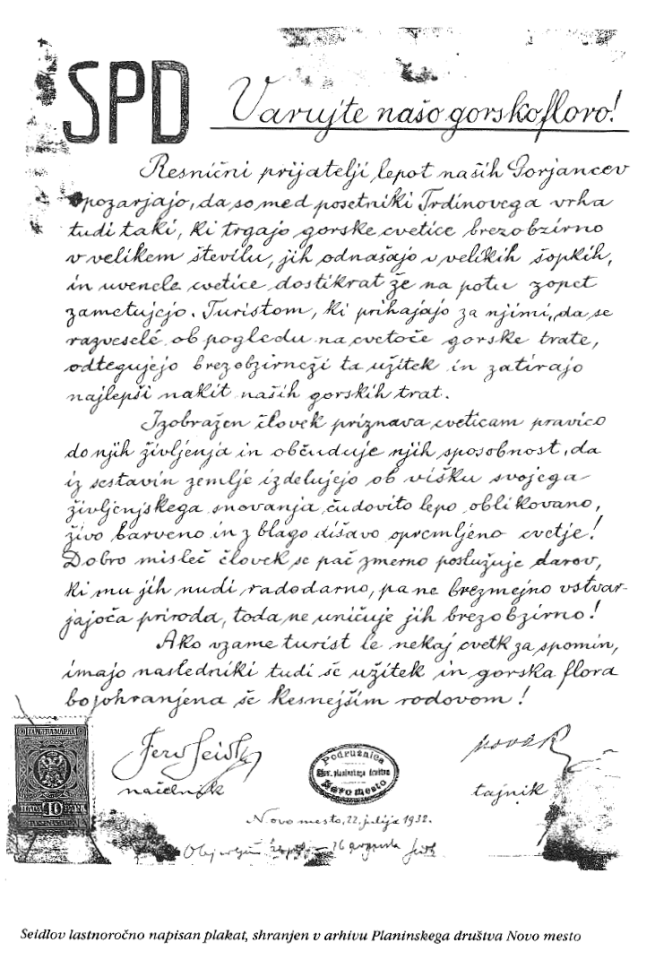 SPD
Varujte našo gorsko floro!
Resnični prijatelji lepot naših Gorjancev
opozarjajo, da so med posetniki Trdinovega vrha
tudi taki, ki trgajo gorske cvetice brezobzirno
v velikem številu, jih odnašajo v velikih šopkih,
in uvenele cvetice dostikrat že na potu zopet
zametujejo. Turistom, ki prihajajo za njimi, da se
razvesele ob pogledu na cvetoče gorske trate,
odtegujejo brezobzirneži ta užitek in zatirajo
najlepši nakit naših gorskih trat.
Izobražen človek priznava cveticam pravico
do njih življenja in občuduje njih sposobnost, da
iz sestavin zemlje izdelujejo ob višku svojega
življenjskega snovanja čudovito lepo oblikovano,
živo barveno in z blago dišavo opremljeno cvetje!
Dobro misleč človek se pač zmerno poslužuje darov,
ki mu jih nudi radodarno, pa ne brezmejno vstvar-
jajoča priroda, toda ne uničuje jih brezobzirno!
Ako vzame turist le nekaj cvetk za spomin,
imajo nasledniki tudi še užitek in gorska flora
bo johranjena še kesnejšim rodovom!
Ferd Seidl
načelnik
Podružnica
Slov. planinskega društva
Novo mesto
tajnik
10
Novo mesto, 22. julija 1932.
16 avgusta
Seidlov lastnoročno napisan plakat, shranjen v arhivu Planinskega društva Novo mesto